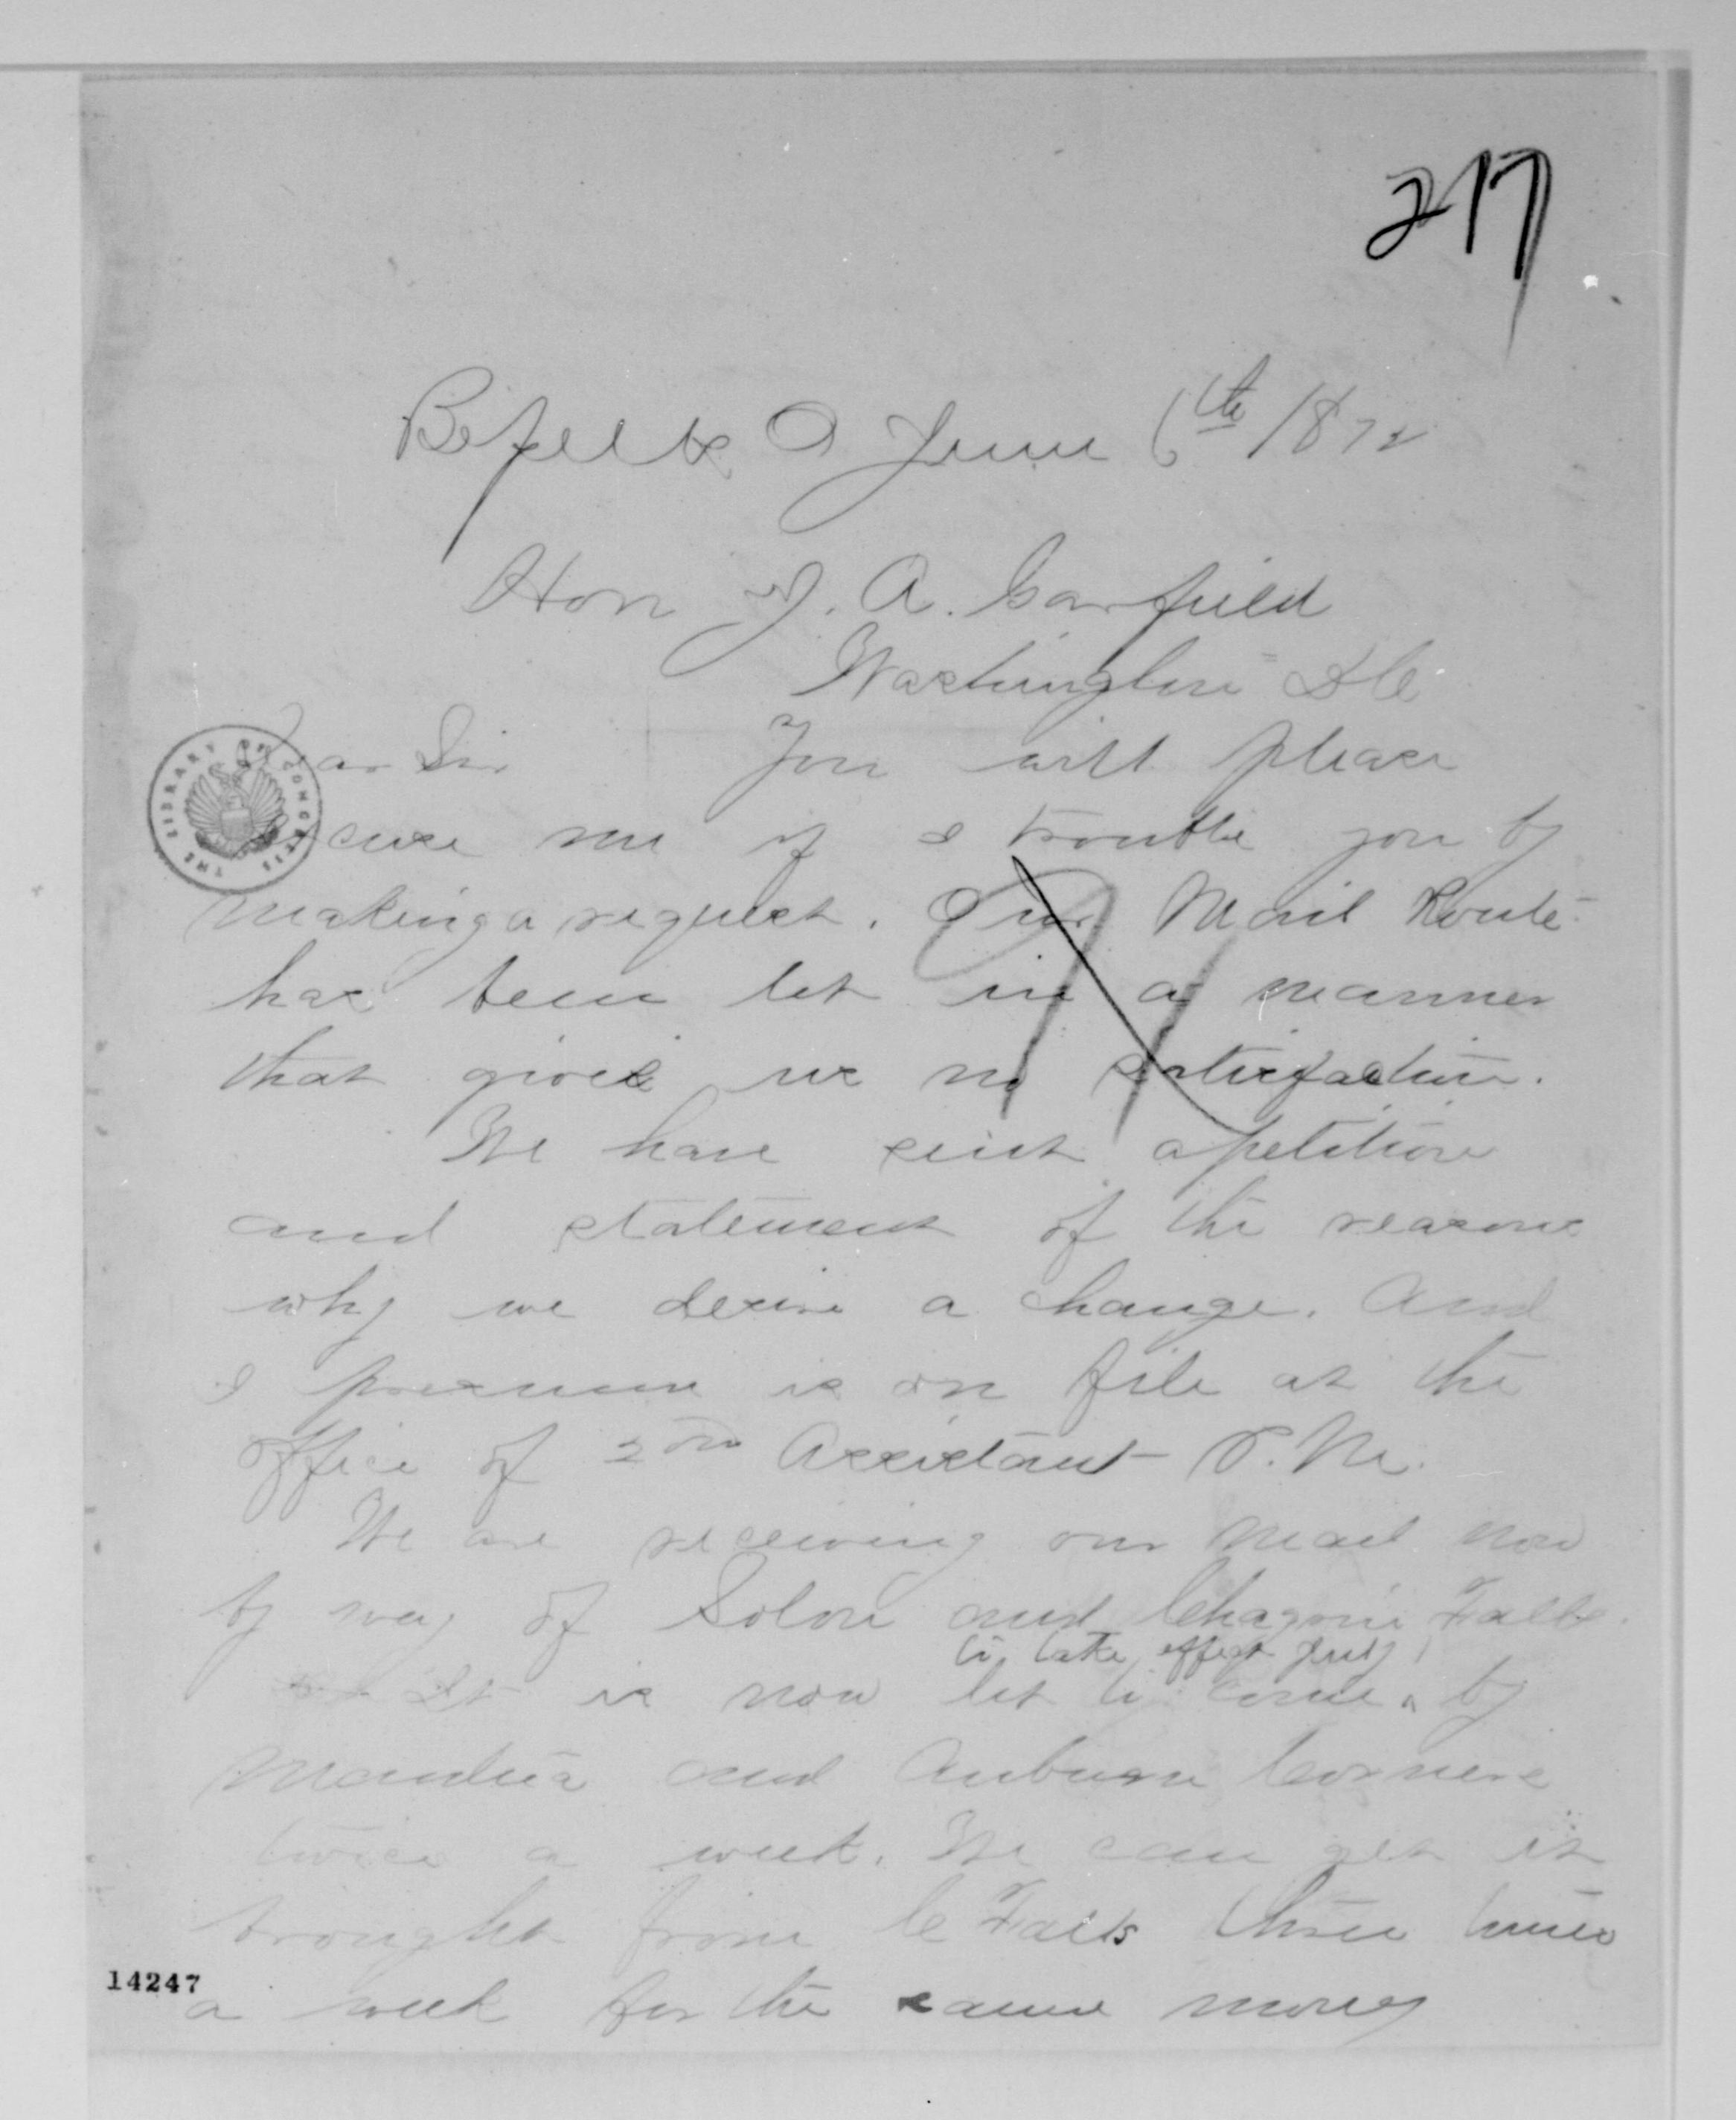 217
O June 6th 1872
Hon J. A. Garfield
Washington D C
Dear Sir You will please
excuse me if I trouble you by
making a request. Our Mail Route
has been let in a manner
that gives us no satisfaction.
We have sent a petition
and statement of the reasons
why we desire a change. And
I presume is on file at the
office of 2nd Assistant P. M.
We are receiving our mail now
by way of Solon and Chagrin Falls.
to take effect July 1
It is now let to come ^ by
Mantua and Auburn Corners
twice a week. We can get it
brought from C Falls three times
a week for the same money
THE LIBRARY OF CONGRESS
14247